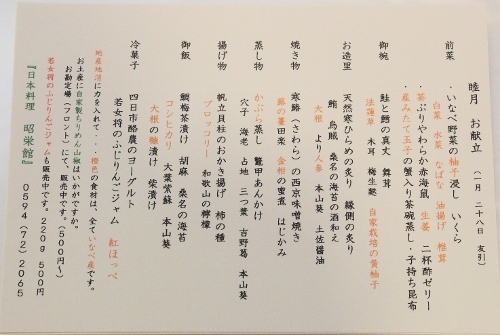 睦月 お献立 (一月 二十八日 友引)
前菜
・いなべ野菜の柚子浸し いくら
白菜 水菜 なばな 油揚げ 椎茸
茶ぶりやわらか赤海鼠 生姜 二杯酢ゼリー
・産みたて玉子の蟹入り茶碗蒸し・子持ち昆布
御椀
鮭と鱈の真丈 舞茸
法蓮草 木耳 梅生麩 自家栽培の黄柚子
お造里
天然寒ひらめの炙り 縁側の炙り
鮪 烏賊 桑名の海苔の酒和え
大根 より人参 本山葵 土佐醤油
焼き物
寒鰆(さわら)の西京味噌焼き
蕗の薹田楽 金柑の蜜煮 はじかみ
蒸し物
かぶら蒸し 鼈甲あんかけ
穴子 海老 占地 三つ葉 吉野葛 本山葵
揚げ物
帆立貝柱のおかき揚げ 柿の種
ブロッコリー 和歌山の檸檬
御飯
鯛梅茶漬け 胡麻 桑名の海苔
コシヒカリ 大葉紫蘇 本山葵
大根の糠漬け 柴漬け
冷菓子
四日市酪農のヨーグルト
若女将のふじりんごジャム 紅ほっぺ
地産地消に力を入れて・・・橙色の食材は、全ていなべ産です。
お土産に自家製ちりめん山椒はいかがですか。
お勘定場(フロント)にて、販売中です。(500円~)
若女将のふじりんごジャムも販売中です。220g 500円
『日本料理 昭栄館』 0594(72)2065